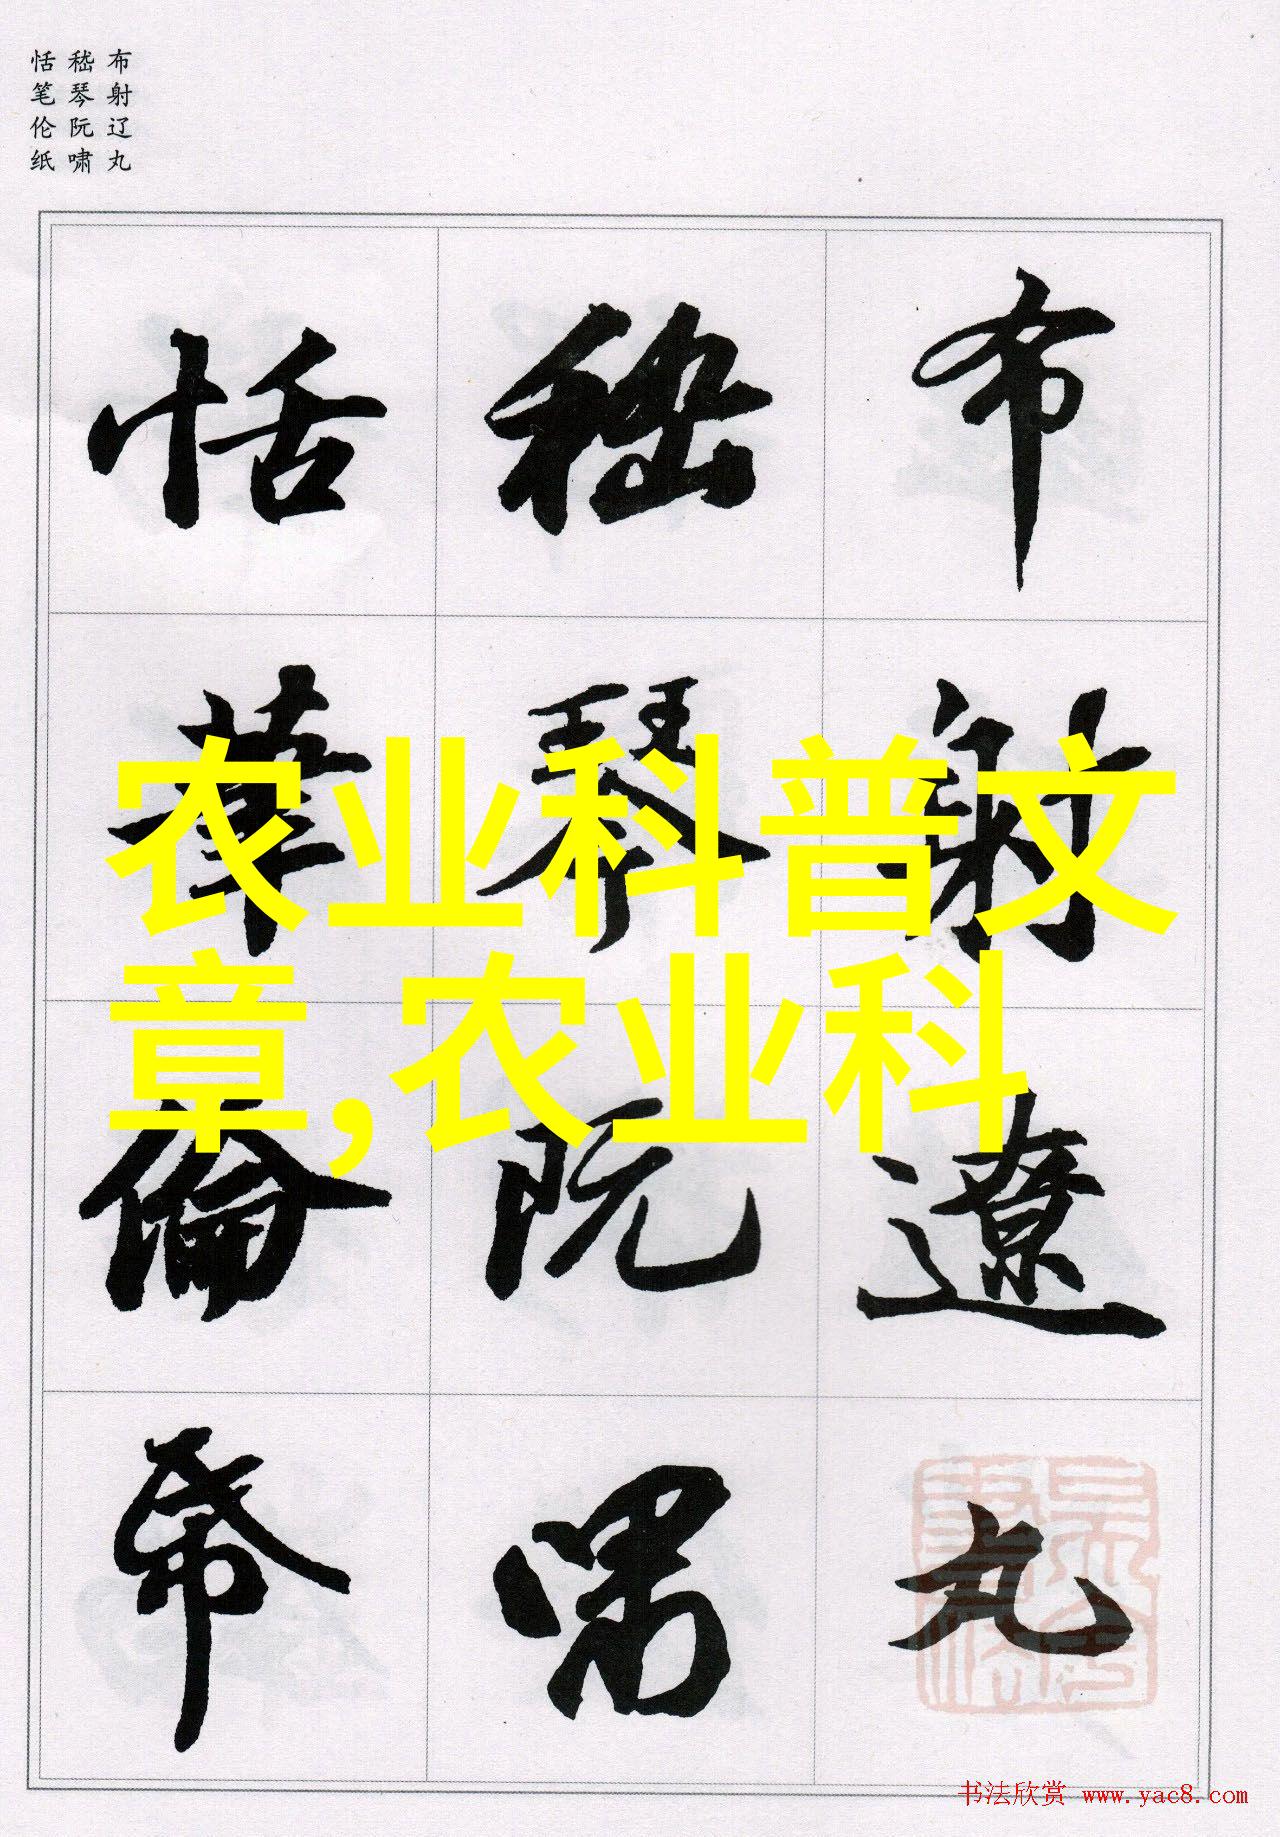 布射辽丸
嵇琴阮啸
恬笔伦纸
布射遼丸
嵇琴阮嘯
恬筆倫帋
农业科普文
章,农业科
书法欣赏 www.yac8.com